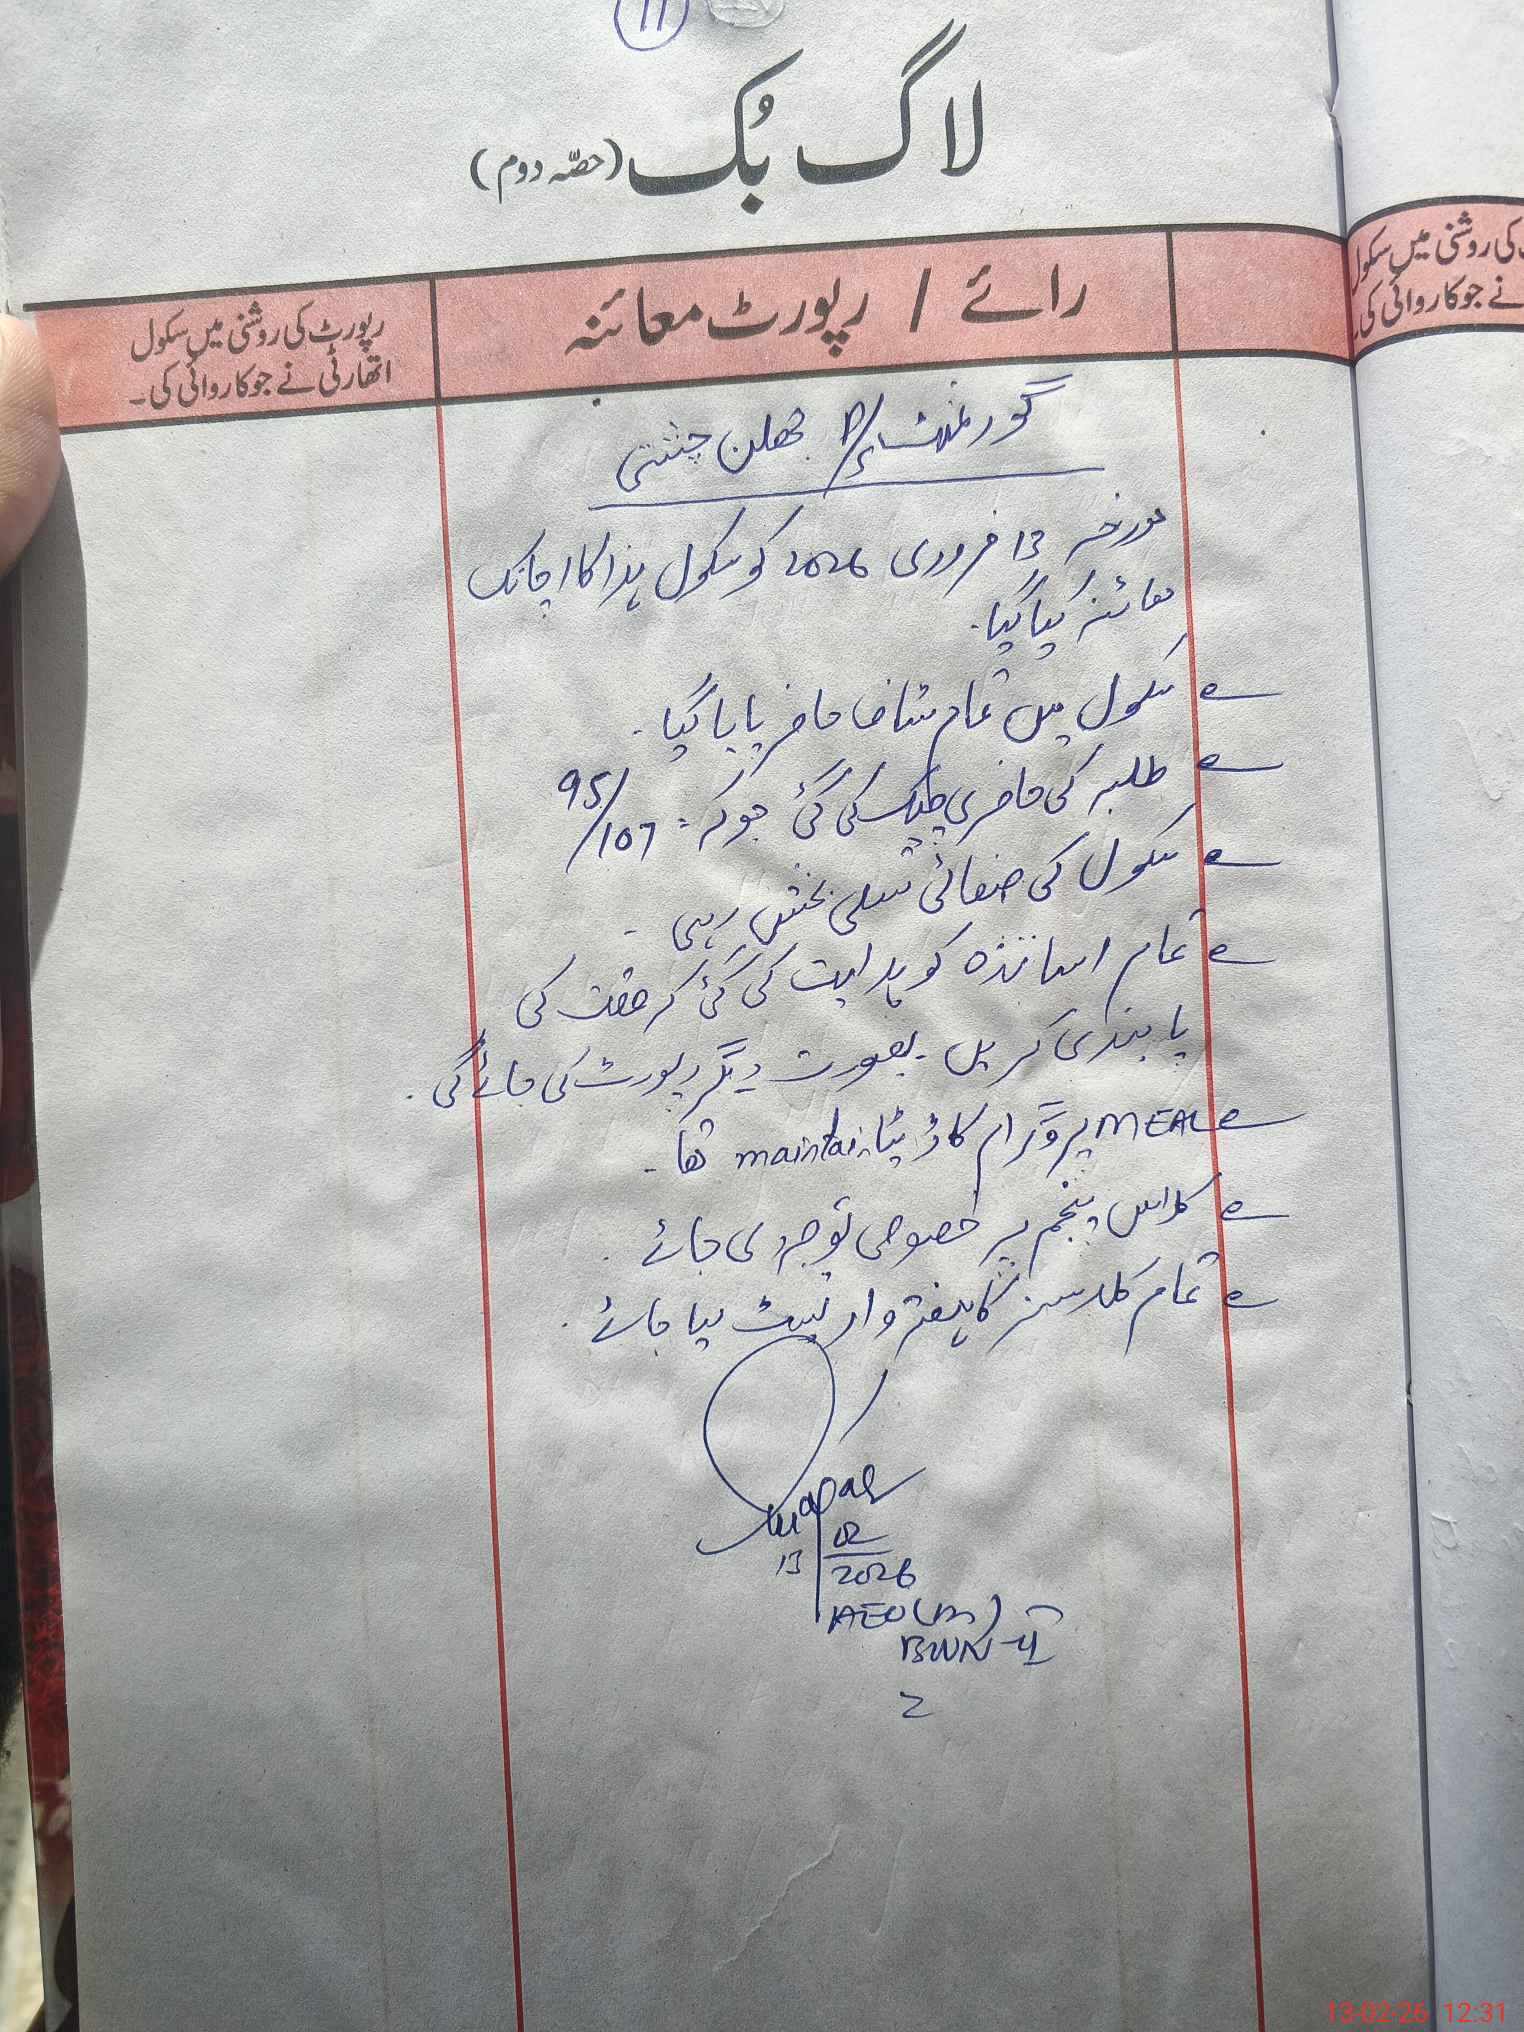 11
لاگ بُک (حصّہ دوم)
رائے / رپورٹ معائنہ
رپورٹ کی روشنی میں سکول
اتھارٹی نے جو کاروائی کی۔
کی روشنی میں سکول
نے جو کاروائی کی۔
گورنمنٹ P/S چشتی
مورخہ 13 فروری 2026 کو سکول ہذا کا اچانک
معائنہ کیا گیا۔
سکول میں تمام سٹاف حاضر پایا گیا۔
طلبہ کی حاضری چیک کی گئی جو کہ : 95/107
سکول کی صفائی تسلی بخش رہی۔
تمام اساتذہ کو ہدایت کی گئی کہ وقت کی
پابندی کریں۔ بصورت دیگر رپورٹ کی جائے گی۔
MEAL پروگرام کا ڈیٹا maintain تھا۔
کلاس پنجم پر خصوصی توجہ دی جائے۔
تمام کلاسز کا ہفتہ وار ٹیسٹ لیا جائے۔
13 | 02
2026
AEO (M)
BWN-II
13-02-26 12:31